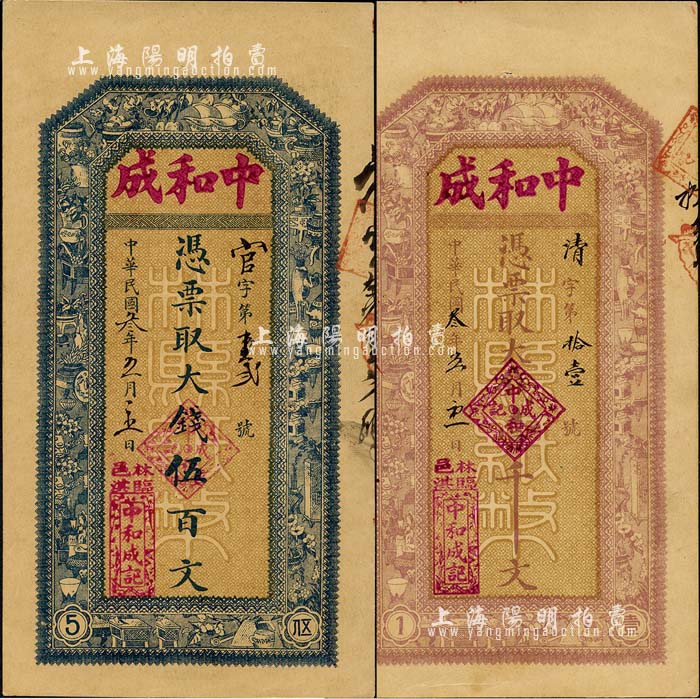 上海陽明拍賣
www.yangmingauction.com
成和中
官字第 號
憑票取大錢伍百文
中華民國叁年五月 日
林臨
邑淇
中和成記
5
上海陽明拍賣
www.yangmingauction.com
成和中
清字第拾壹號
憑票取大 千文
中華民國叁 五月 日
中和成記
林臨
邑淇
中和成記
1
上海陽明拍賣
www.yangmingauction.com
林縣紙幣
林縣紙幣